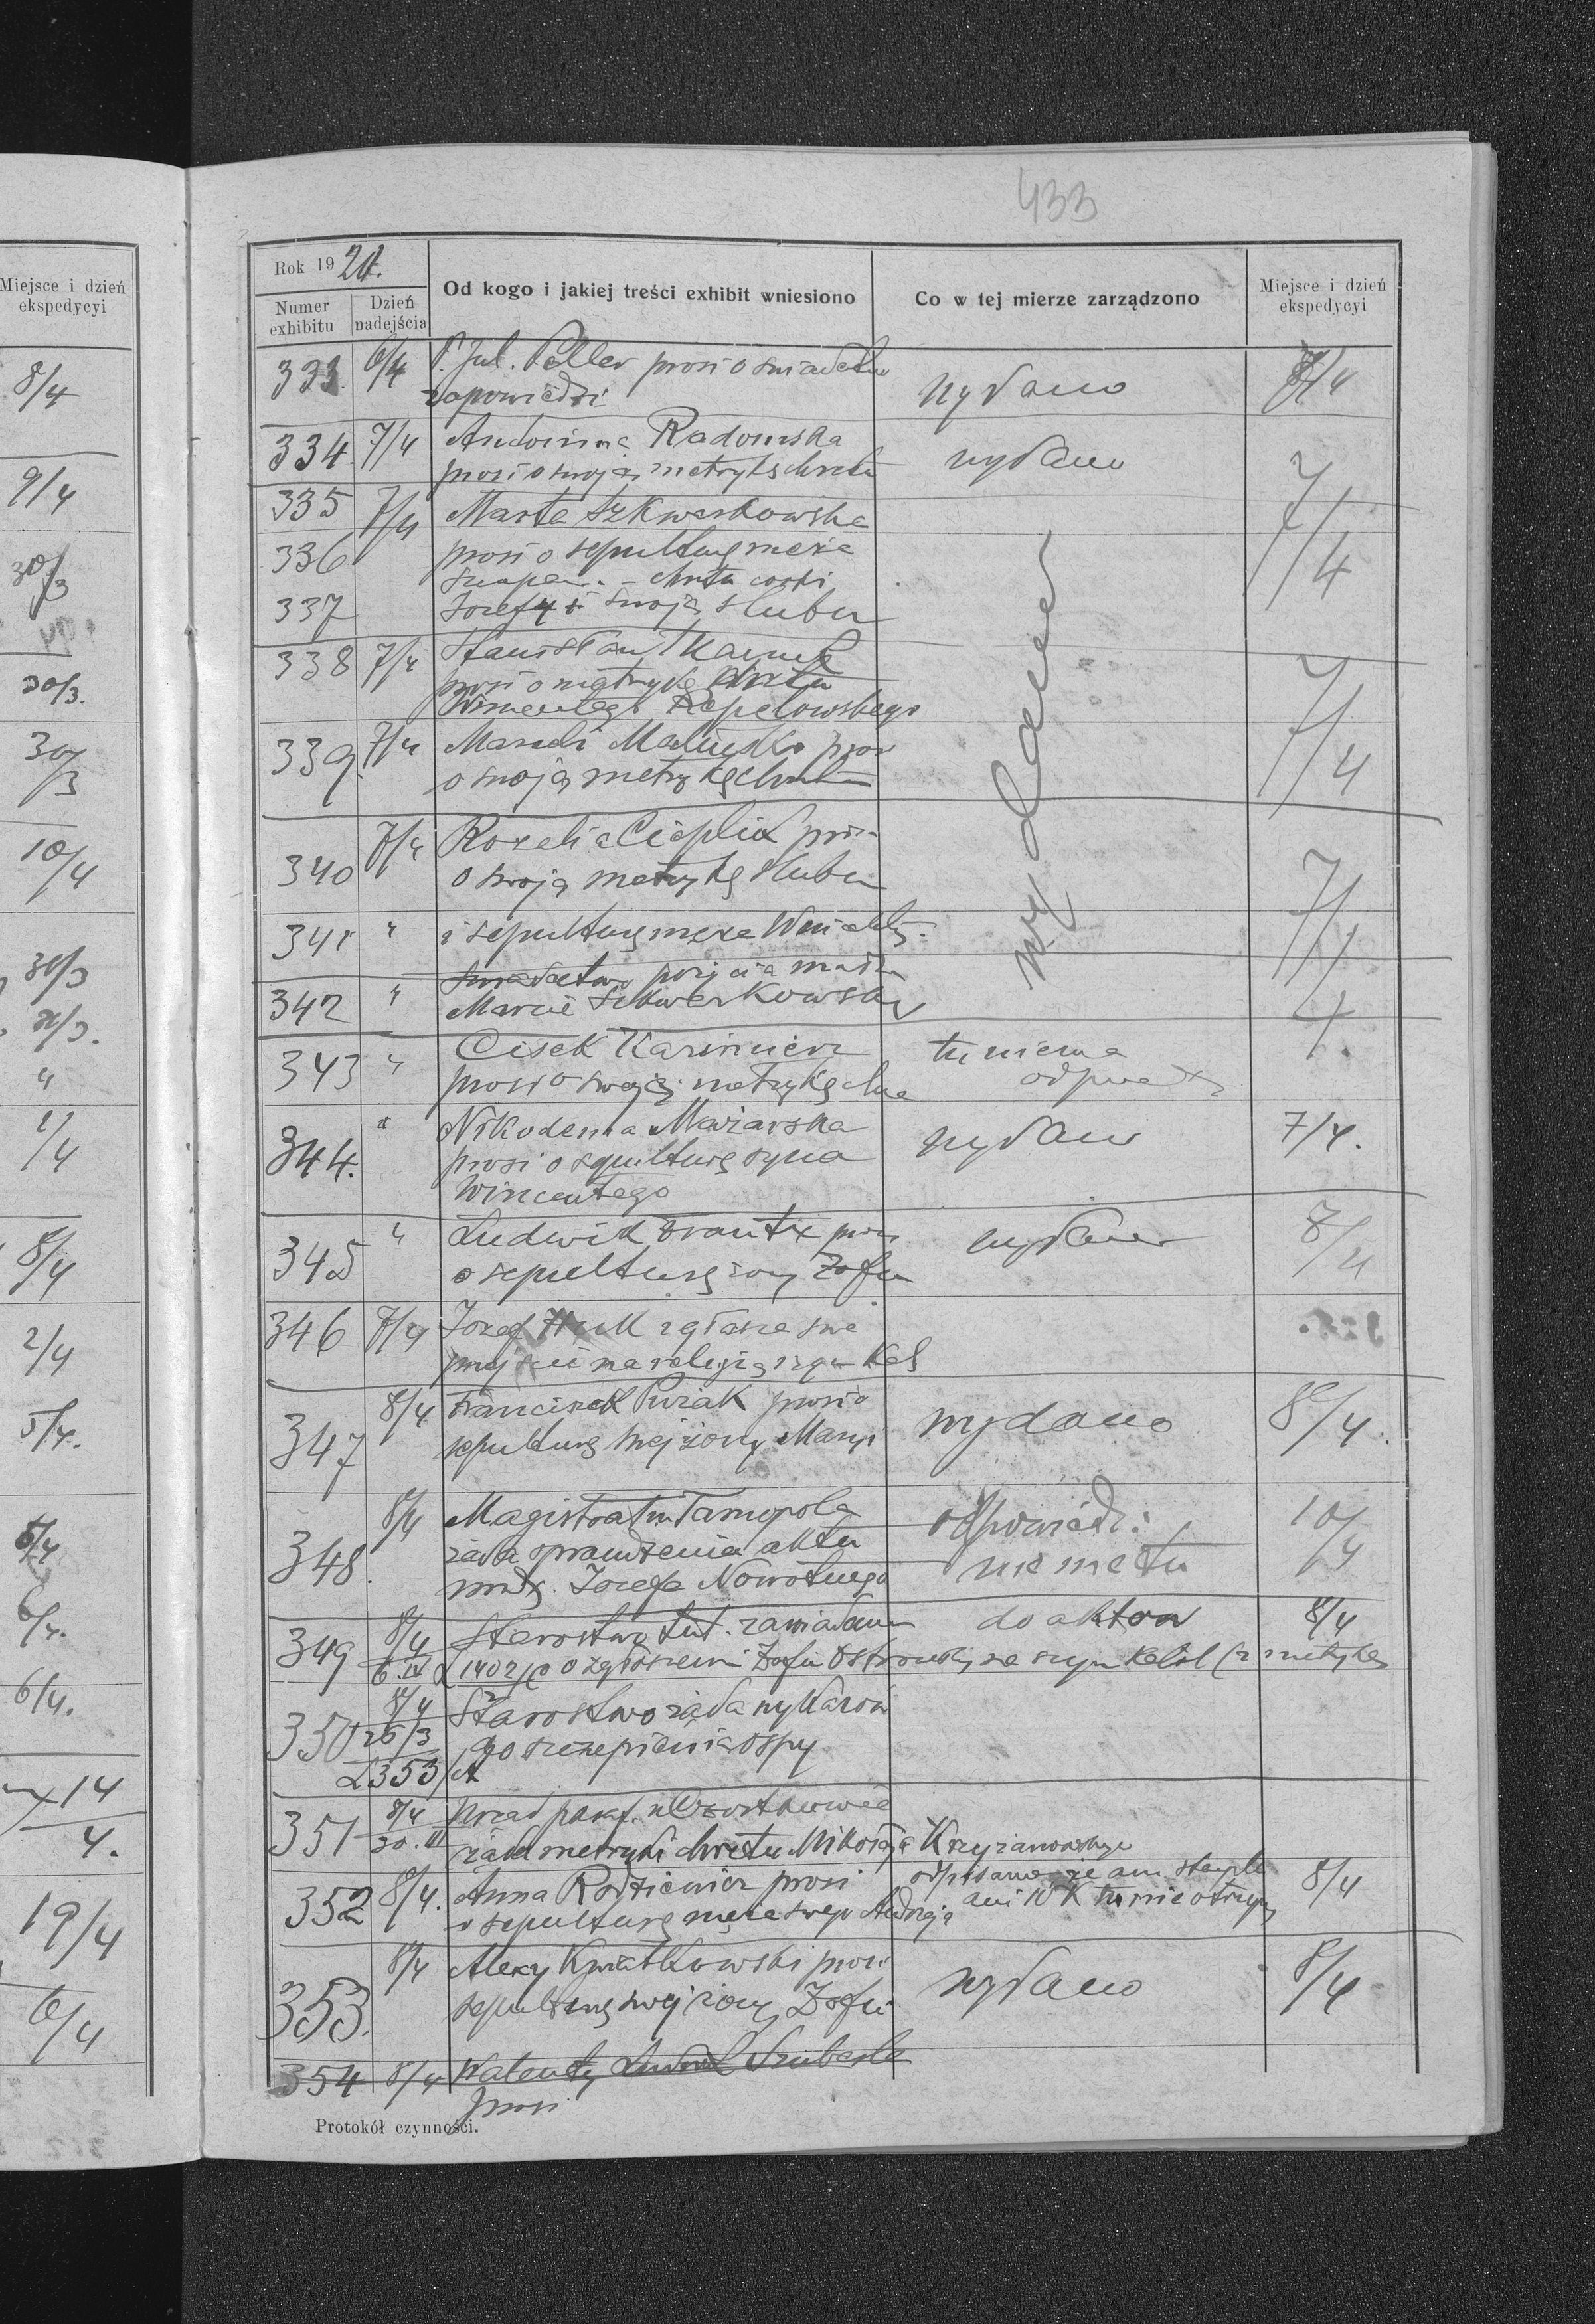 433
Miejsce i dzień
ekspedycyi
8/4
9/4
30/3
30/3.
30/3
10/4
30/3
"
1/4
8/4
2/4
5/4.
5/4
6/4.
6/4.
14
4.
19/4
6/4
Rok 1921.
Numer exhibitu
Dzień nadejścia
Od kogo i jakiej treści exhibit wniesiono
Co w tej mierze zarządzono
Miejsce i dzień ekspedycyi
333 6/4 P. Jul. Peller prosi o świadectwo wydano 8/4
zapowiedzi
334. 7/4 Antonina Radomska wydano
prosi o swoją metrykę chrztu
335 7/4 Marta Szkwarkowska 7/4
336 prosi o sepulturę męża
chrztu córki
337 Józefy i swoją ślubu
wydano
338 7/4 Stanisław 7/4
prosi o metrykę chrztu
Wincentego
339. 7/4 prosi
o swoją metrykę chrztu
340 7/4 Rozalia Cieplik prosi 7/4
o swoją metrykę ślubu
341 " i sepulturę męża
342 " świadectwo pożycia małż.
Marcie Szkwarkowskiej
343 " Cisek Kazimierz tu niema
prosi o swoją metrykę chrz
344. " Nikodema Mazarska wydano 7/4.
prosi o sepulturę syna
Wincentego
345 " Ludwik prosi wydano 8/4
o sepulturę żony Zofii
346 7/4 Józef zgłasza swe
przejście na religię rzym kat
347 8/4 Franciszek Puzak prosi o wydano 8/4.
sepulturę swej żony Maryi
348. 8/4 Magistrat m Tarnopola odpowiedź: 10/4
żąda sprawdzenia aktu nie ma tu
Józefa Nowotnego
349 8/4 Starostwo tut. zawiadam do aktow 8/4
6.IV L 1402 o zgłoszeniu Zofii na rzym kat
350 8/4 Starostwo żąda wykazów
25/3 do szczepienia ospy
L 353/A
351 8/4 Urząd paraf.
30.III żąda metryki chrztu Mikołaja Krzyżanowskiego
352 8/4. Anna Rodziewicz prosi odpisano że ani stempla 8/4
o sepulturę męża swego Andrzeja ani 10 K tu nie otrzym
353. 8/4 Alexy Kwiatkowski prosi wydano 8/4
sepulturę swej żony Zofii
354 8/4 Walenty
prosi
Protokół czynności.